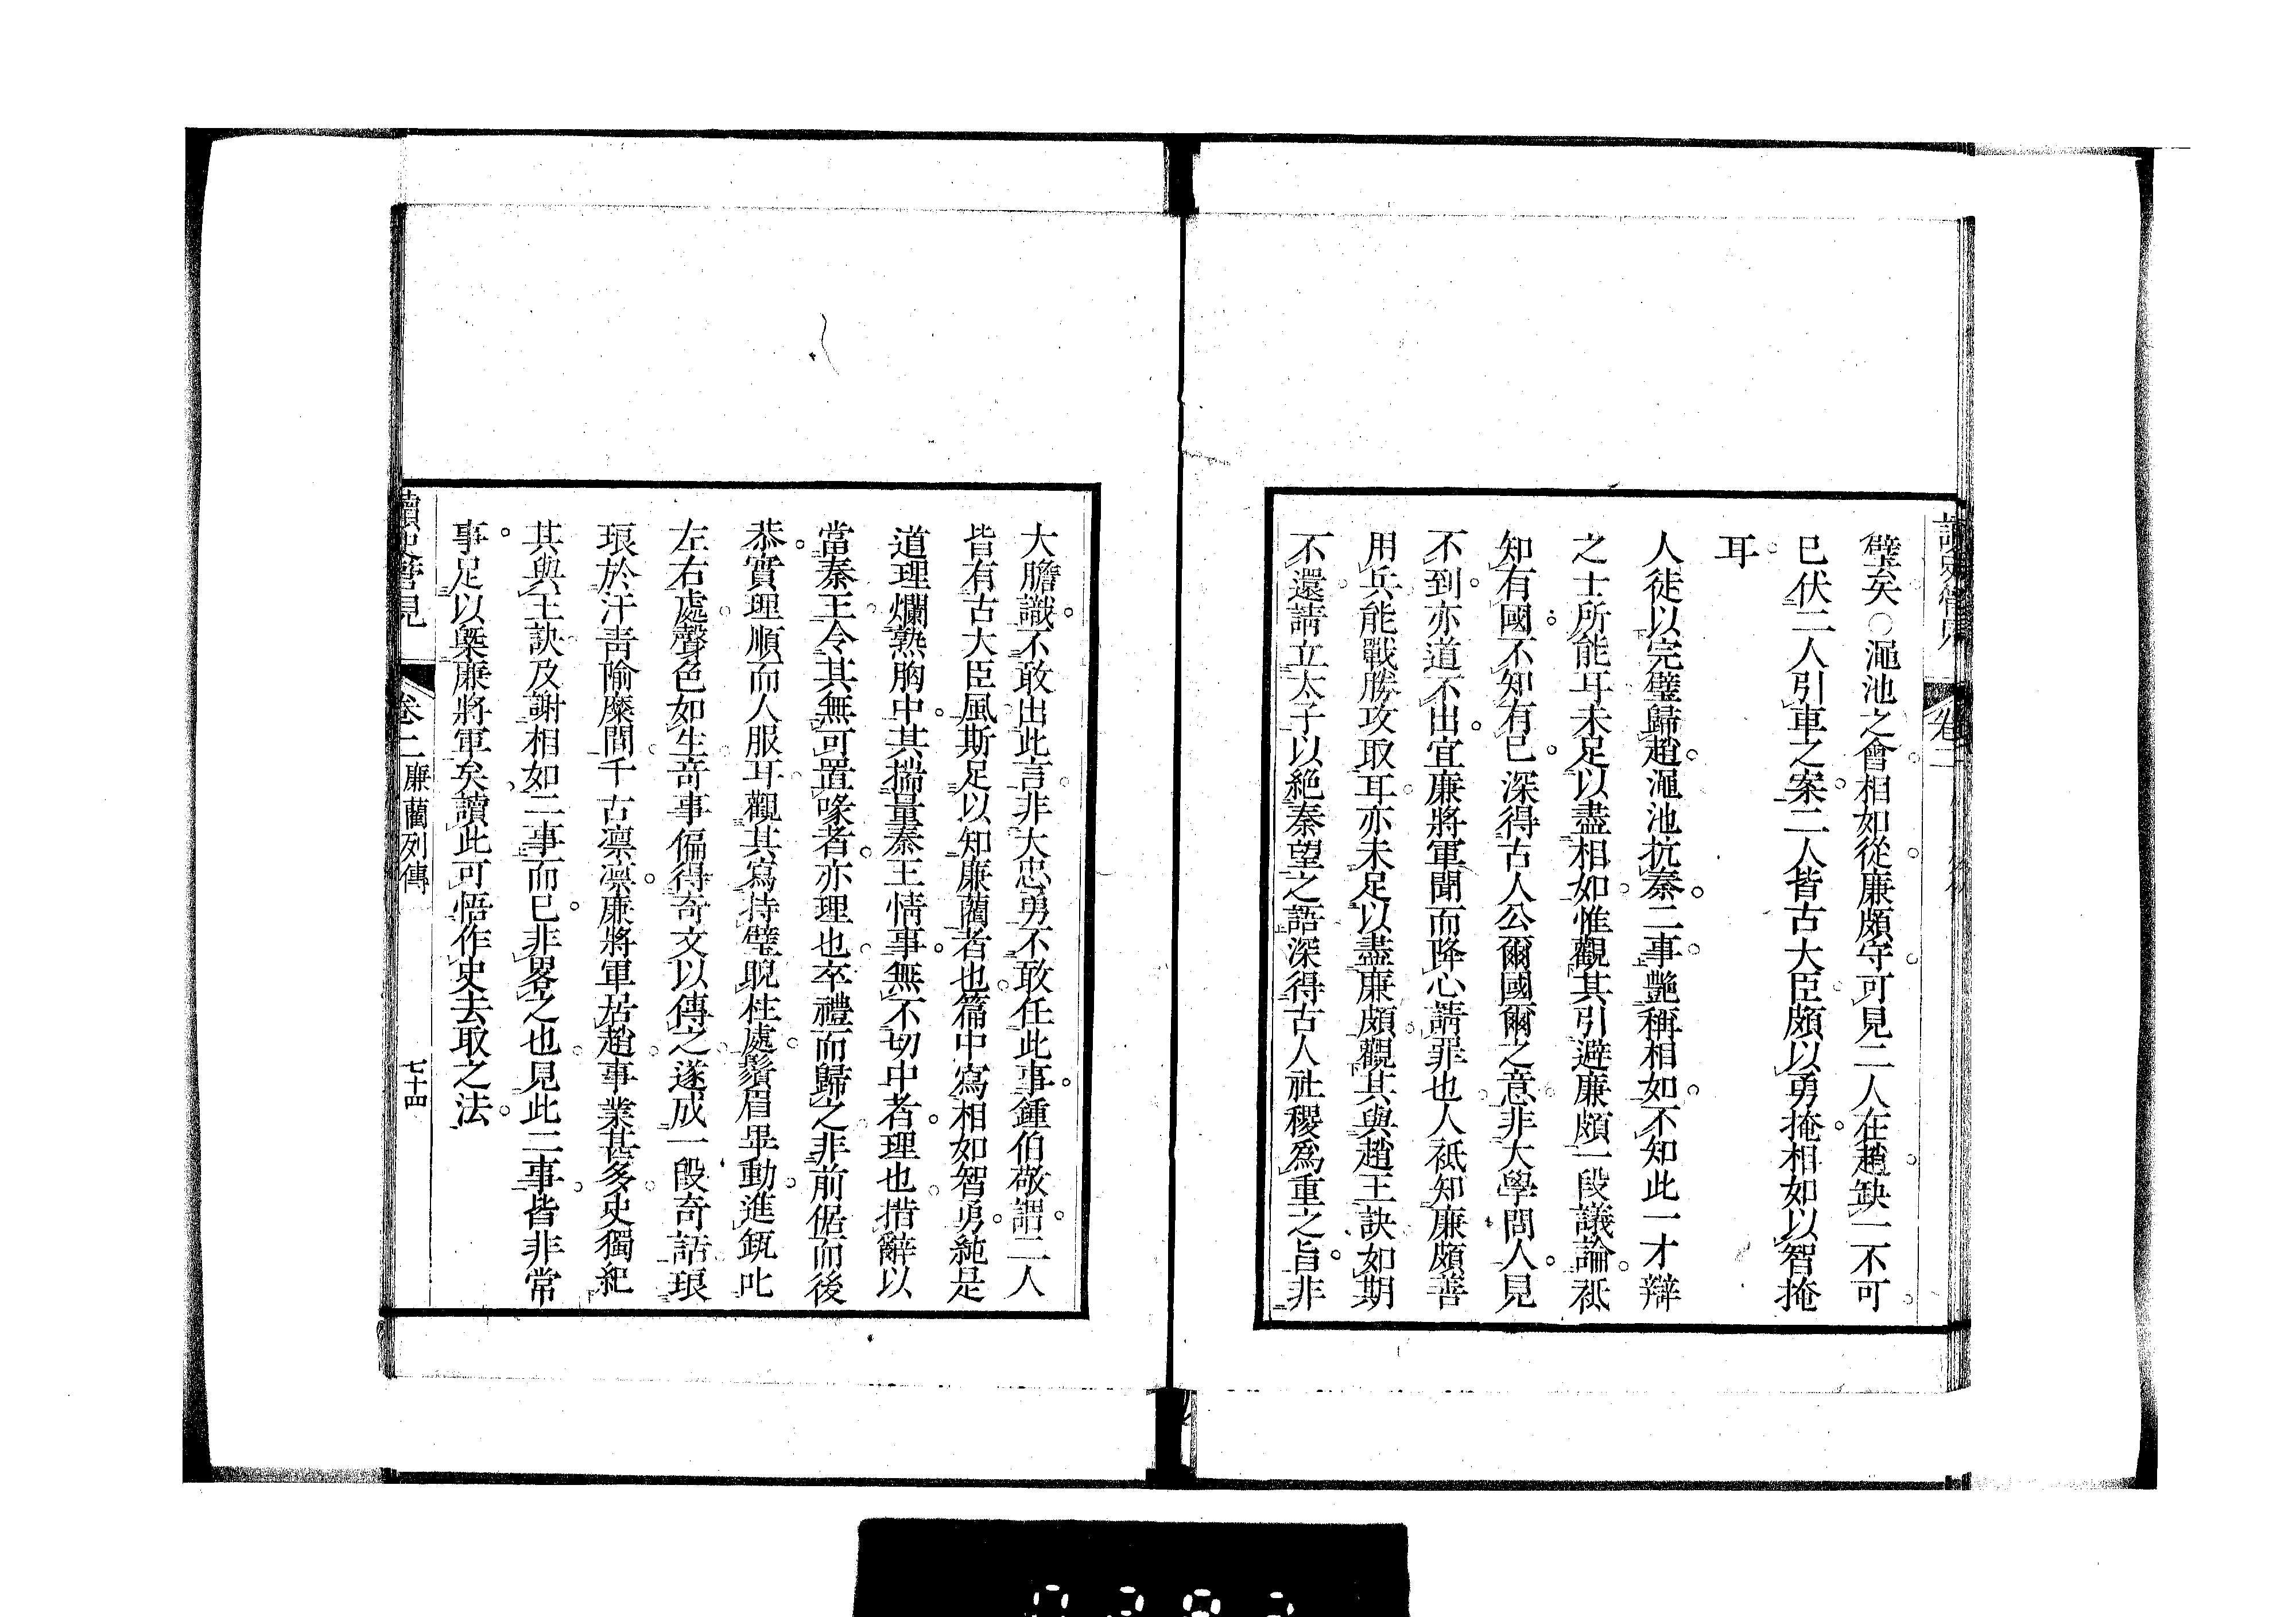 璧矣○澠池之會相如從廉頗守可見二人在趙缺一不可
已伏二人引車之案二人皆古大臣頗以勇掩相如以智掩
耳
人徒以完璧歸趙澠池抗秦二事艷稱相如不知此一才辯
之士所能耳未足以盡相如惟觀其引避廉頗一段議論祗
知有國不知有已深得古人公爾國爾之意非大學問人見
不到亦道不出宜廉將軍聞而降心請罪也人祗知廉頗善
用兵能戰勝攻取耳亦未足以盡廉頗觀其與趙王訣如期
不還請立太子以絶秦望之語深得古人社稷爲重之旨非
大膽識不敢出此言非大忠勇不敢任此事鍾伯敬謂二人
皆有古大臣風斯足以知廉藺者也篇中寫相如智勇純是
道理爛熟胸中其揣量秦王情事無不切中者理也措辭以
當秦王令其無可置喙者亦理也卒禮而歸之非前倨而後
恭實理順而人服耳觀其寫持璧睨柱處鬚眉畢動進缻叱
左右處聲色如生奇事偏得奇文以傳之遂成一段奇話琅
琅於汗青隃糜間千古凛凛廉將軍居趙事業甚多史獨紀
其與王訣及謝相如二事而已非畧之也見此二事皆非常
事足以槩廉將軍矣讀此可悟作史去取之法
讀史管見 卷二 廉藺列傳 七十四